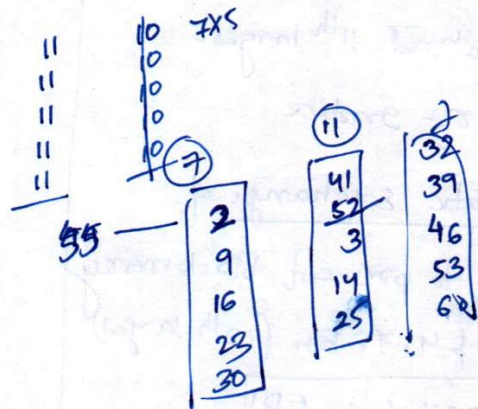 7x5
11
11
11
11
11
10
10
10
10
10
7
55
2
9
16
23
30
11
41
52
3
14
25
32
39
46
53